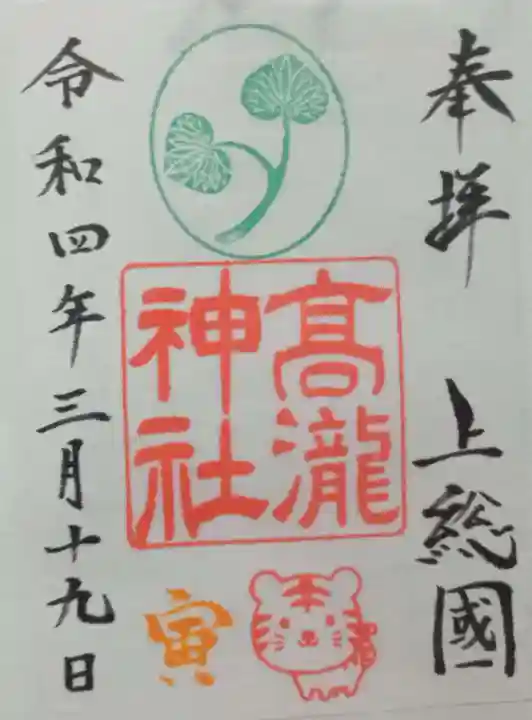 奉拝 上総國
高瀧
神社
寅
令和四年三月十九日